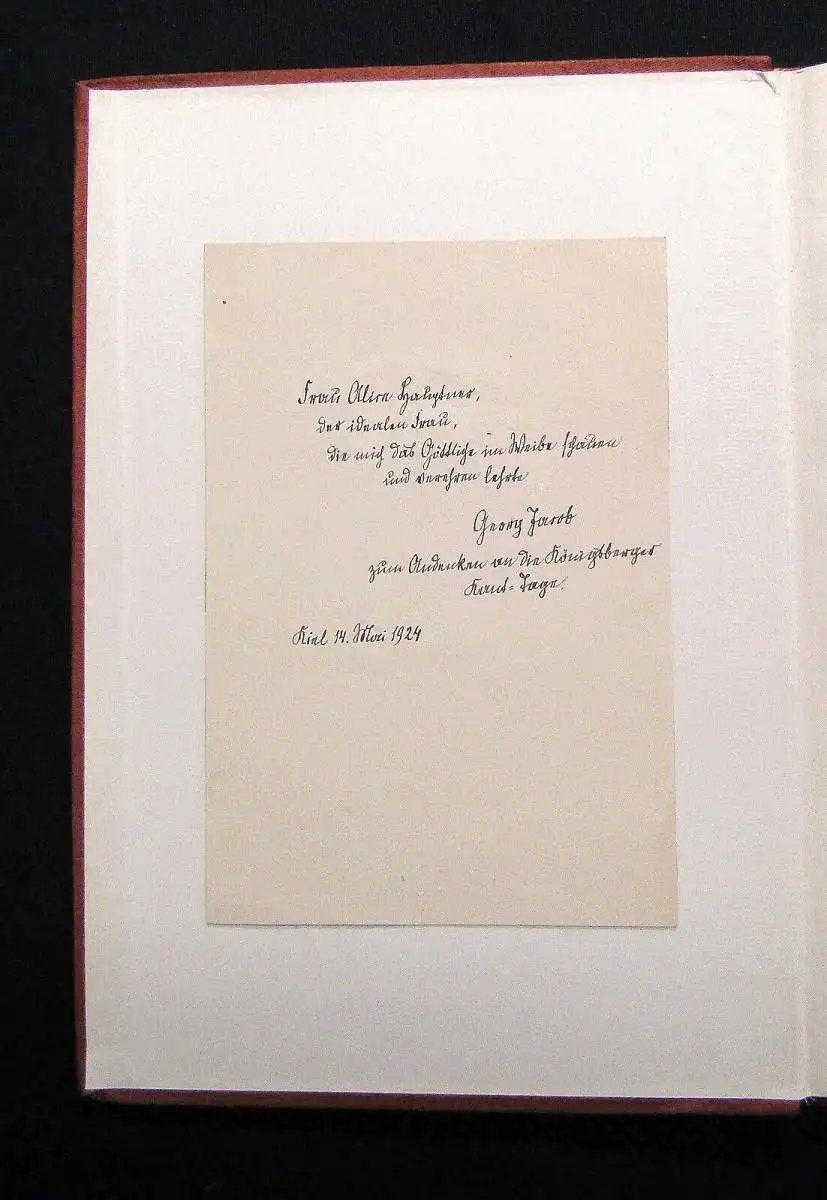 Frau Alice Hauptner,
der idealen Frau,
die mich das Göttliche im Weibe schauen
und verehren lehrte
Georg Jacob
zum Andenken an die Königsberger
Kant-Tage.
Kiel 14. Mai 1924